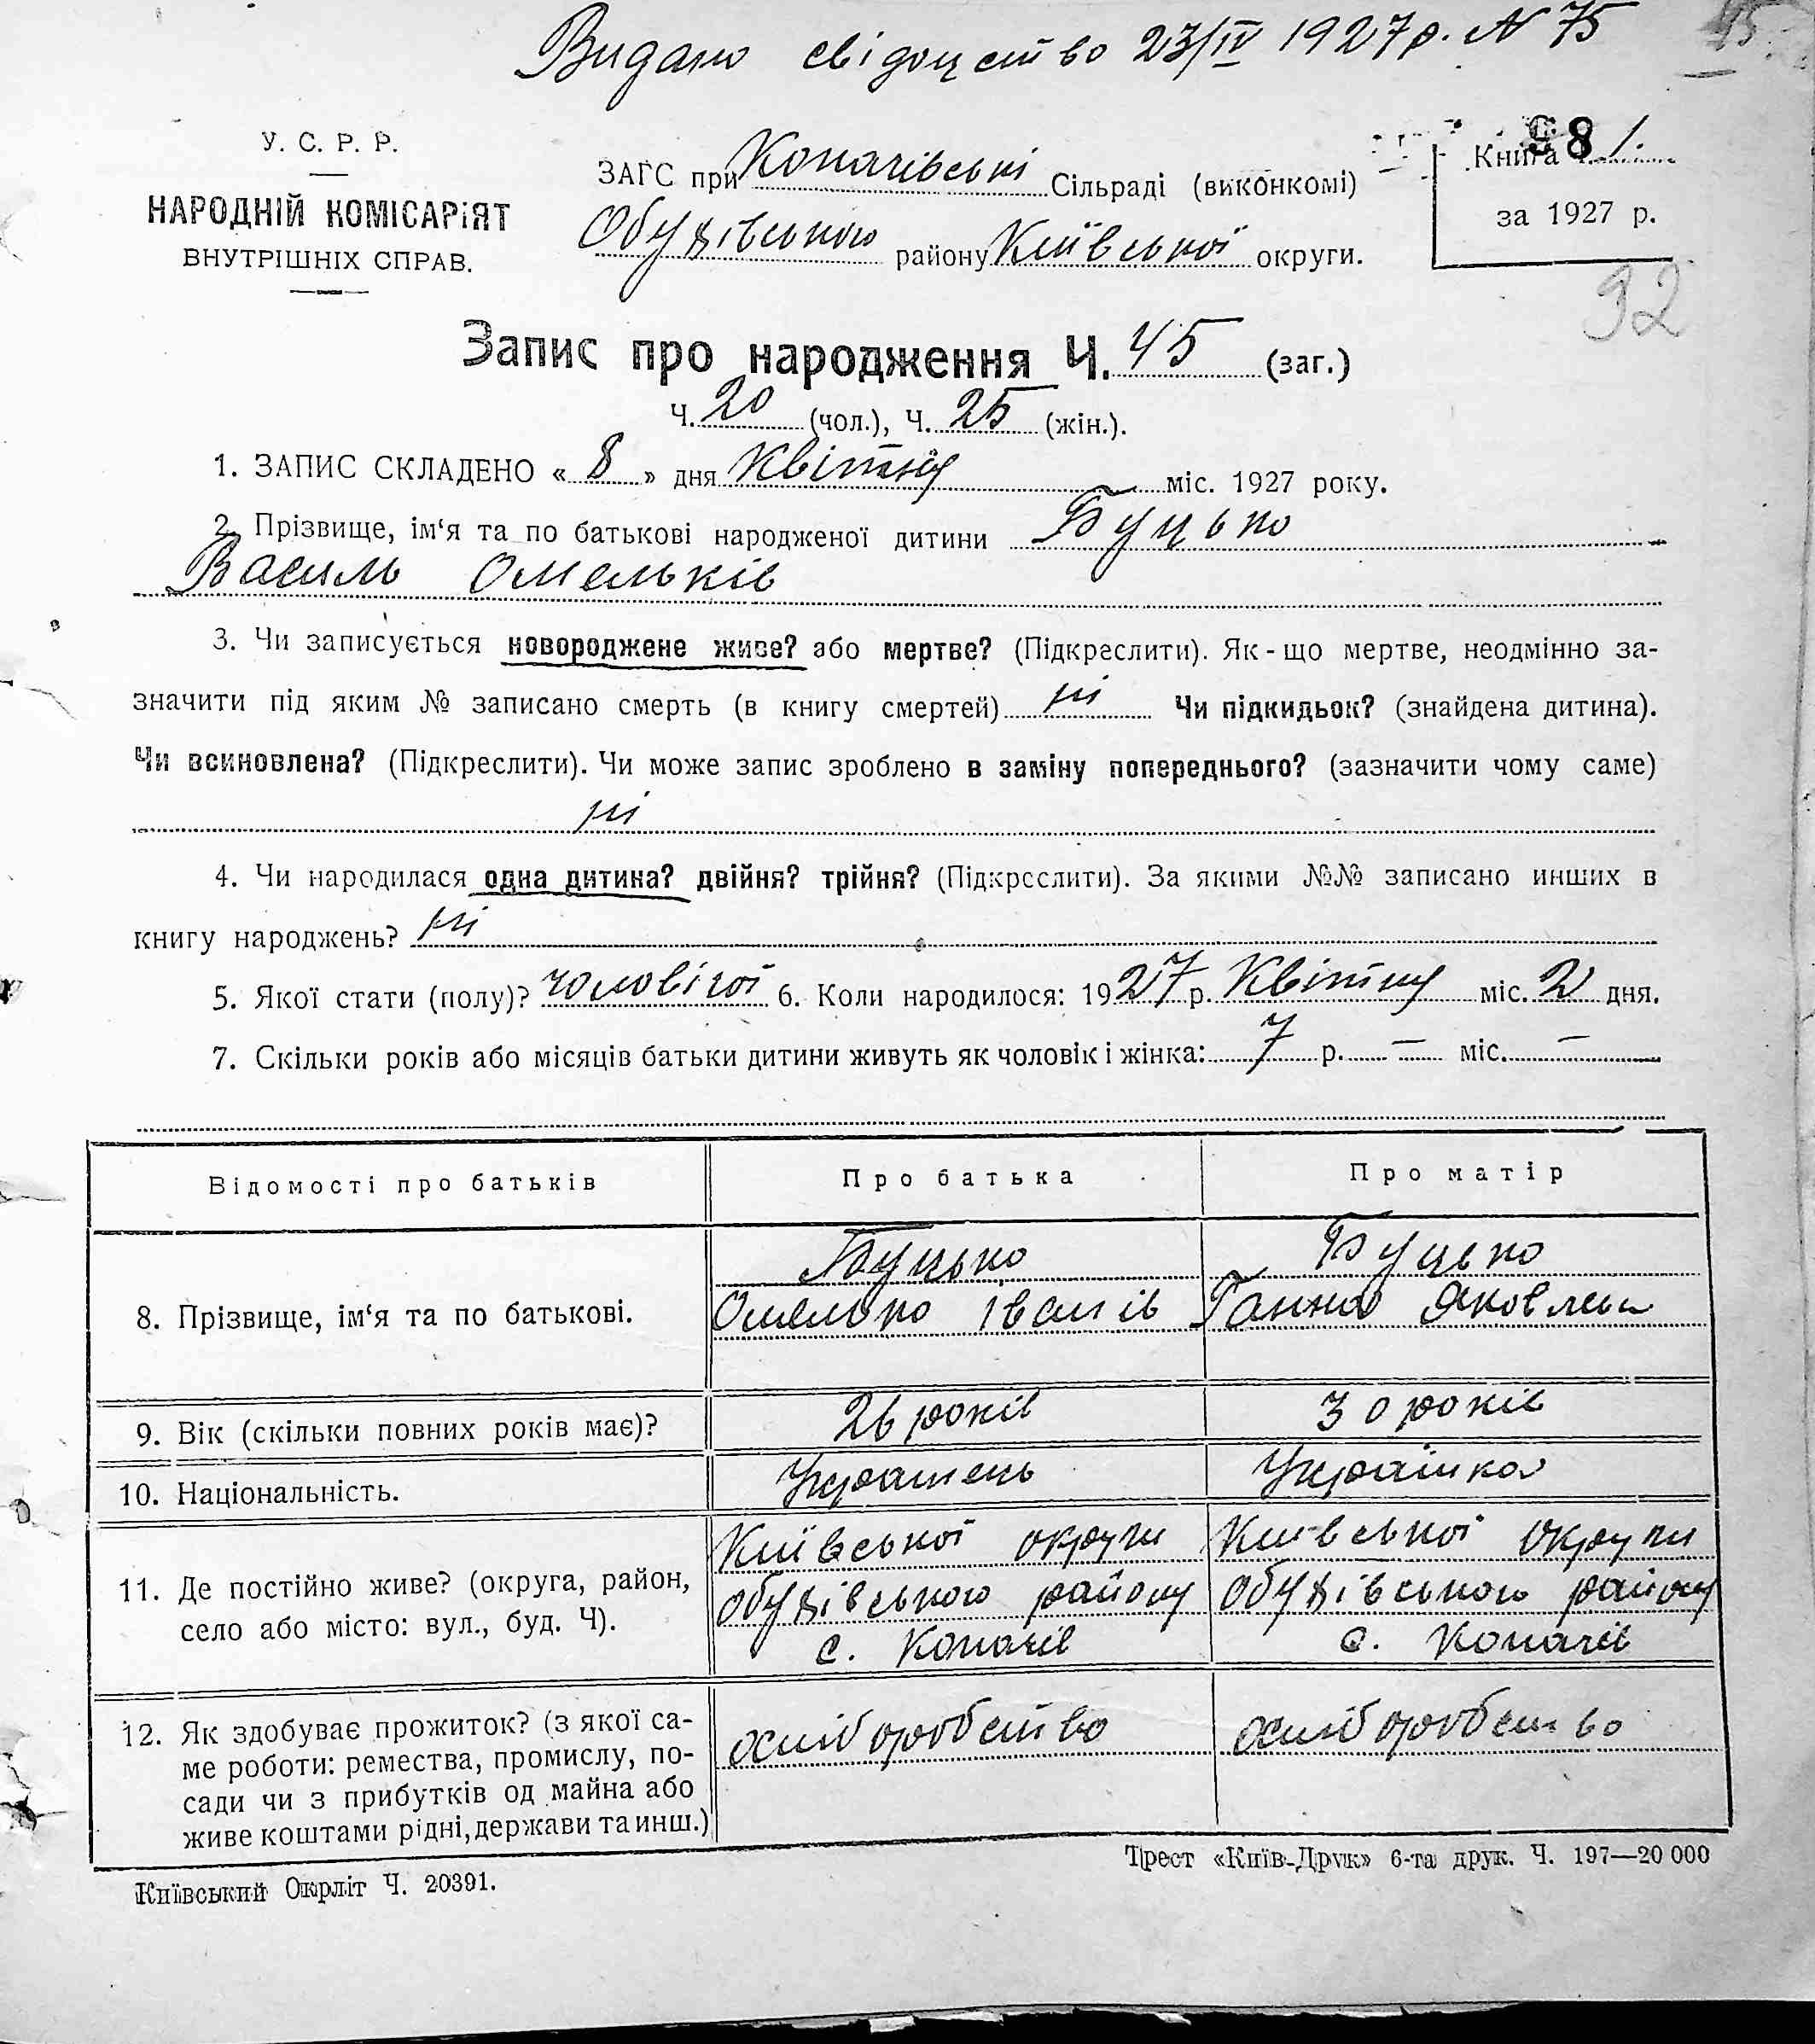 Видано свідоцтво 23/IV 1927 р. N 75
45
У. С. Р. Р.
НАРОДНІЙ КОМІСАРІЯТ
ВНУТРІШНІХ СПРАВ.
ЗАГС при Копачівські Сільраді (виконкомі)
Обухівського району Київської округи.
98
Книга 1.
за 1927 р.
92
Запис про народження Ч. 45 (заг.)
Ч. 20 (чол.), Ч. 25 (жін.).
1. ЗАПИС СКЛАДЕНО « 8 » дня Квітня міс. 1927 року.
2. Прізвище, ім‘я та по батькові народженої дитини Буцько
Василь Омельків
3. Чи записується новороджене живе? або мертве? (Підкреслити). Як-що мертве, неодмінно за-
значити під яким № записано смерть (в книгу смертей) ні Чи підкидьок? (знайдена дитина).
Чи всиновлена? (Підкреслити). Чи може запис зроблено в заміну попереднього? (зазначити чому саме)
ні
4. Чи народилася одна дитина? двійня? трійня? (Підкреслити). За якими №№ записано инших в
книгу народжень? ні
5. Якої стати (полу)? чоловічої 6. Коли народилося: 1927 р. Квітня міс. 2 дня.
7. Скільки років або місяців батьки дитини живуть як чоловік і жінка: 7 р. — міс. —
Відомості про батьків Про батька Про матір
8. Прізвище, ім‘я та по батькові.
Буцько
Омелько Іванів
Буцько
Ганна Яковлева
9. Вік (скільки повних років має)? 26 років 30 років
10. Національність. Українець Українка
11. Де постійно живе? (округа, район,
село або місто: вул., буд. Ч).
Київської округи
Обухівського району
с. Копачів
Київської округи
Обухівського району
с. Копачів
12. Як здобуває прожиток? (з якої са-
ме роботи: ремества, промислу, по-
сади чи з прибутків од майна або
живе коштами рідні, держави та инш.)
хліборобство
хліборобство
Київський Окрліт Ч. 20391.
Трест «Київ-Друк» 6-та друк. Ч. 197—20 000